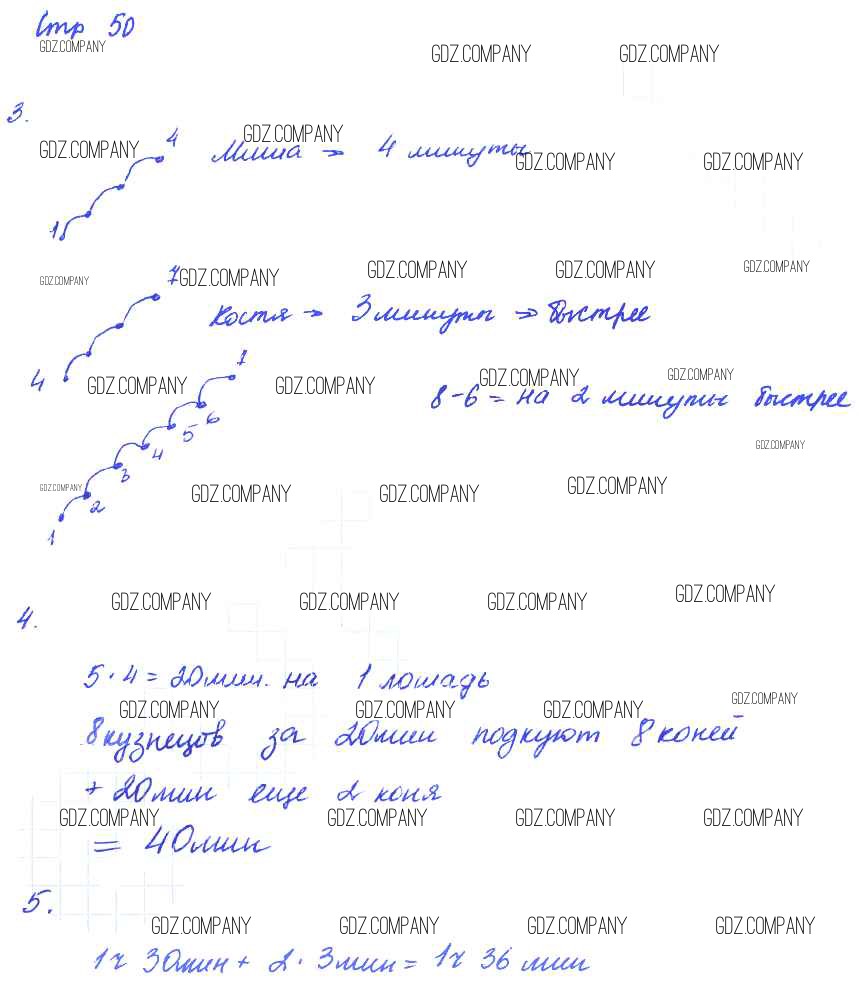 Стр 50
GDZ.COMPANY GDZ.COMPANY GDZ.COMPANY
3.
GDZ.COMPANY GDZ.COMPANY
4 Миша → 4 минуты
GDZ.COMPANY GDZ.COMPANY
1
GDZ.COMPANY 7 GDZ.COMPANY GDZ.COMPANY GDZ.COMPANY GDZ.COMPANY
Костя → 3 минуты ⇒ быстрее
4 GDZ.COMPANY 7 GDZ.COMPANY GDZ.COMPANY GDZ.COMPANY
8-6 = на 2 минуты быстрее
6
5
4 GDZ.COMPANY
3
GDZ.COMPANY GDZ.COMPANY GDZ.COMPANY GDZ.COMPANY
2
1
GDZ.COMPANY GDZ.COMPANY GDZ.COMPANY GDZ.COMPANY
4.
5 · 4 = 20 мин. на 1 лошадь
GDZ.COMPANY GDZ.COMPANY GDZ.COMPANY GDZ.COMPANY
8 кузнецов за 20 мин подкуют 8 коней
+ 20 мин еще 2 коня
GDZ.COMPANY GDZ.COMPANY GDZ.COMPANY GDZ.COMPANY
= 40 мин
5.
GDZ.COMPANY GDZ.COMPANY GDZ.COMPANY GDZ.COMPANY
1ч 30мин + 2 · 3 мин = 1ч 36 мин